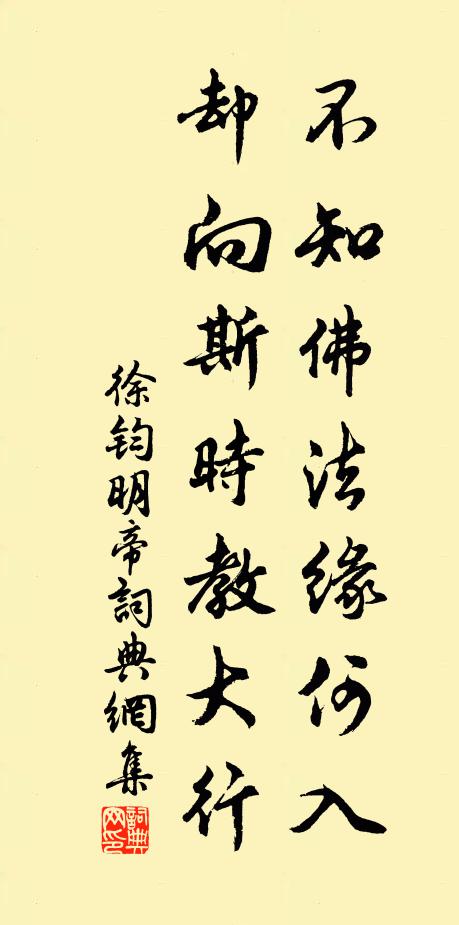 不知佛法緣何入
却向斯時教大行
徐鈞明帝詞典網集
詞典网印